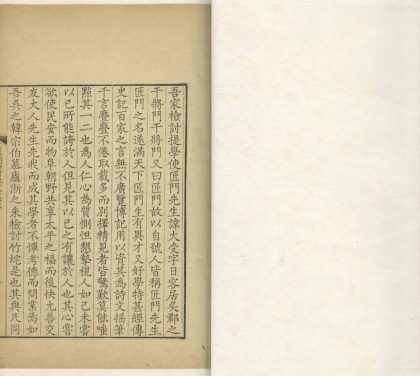 吾家檢討提學使匠門先生諱大受字日容居吳郡之
干將門干將門又曰匠門故以自號人皆稱匠門先生
匠門之名遂滿天下匠門生有異才又好學特甚經傳
史記百家之言無不廣覽博記用以資其為詩文搖筆
千言亹亹不倦取裁多而別擇精見者皆驚歎莫能嗤
點其一二也為人仁心為質惻怛懇摯視人如己未嘗
以己所能誇於人但見其以己之有讓於人也其心嘗
欲使民安而物阜朝野共享太平之福而後快尤善交
友大人先生先我而成其學者不憚考德而問業焉如
吾吳之韓宗伯慕廬浙之朱檢討竹垞是也其與及同